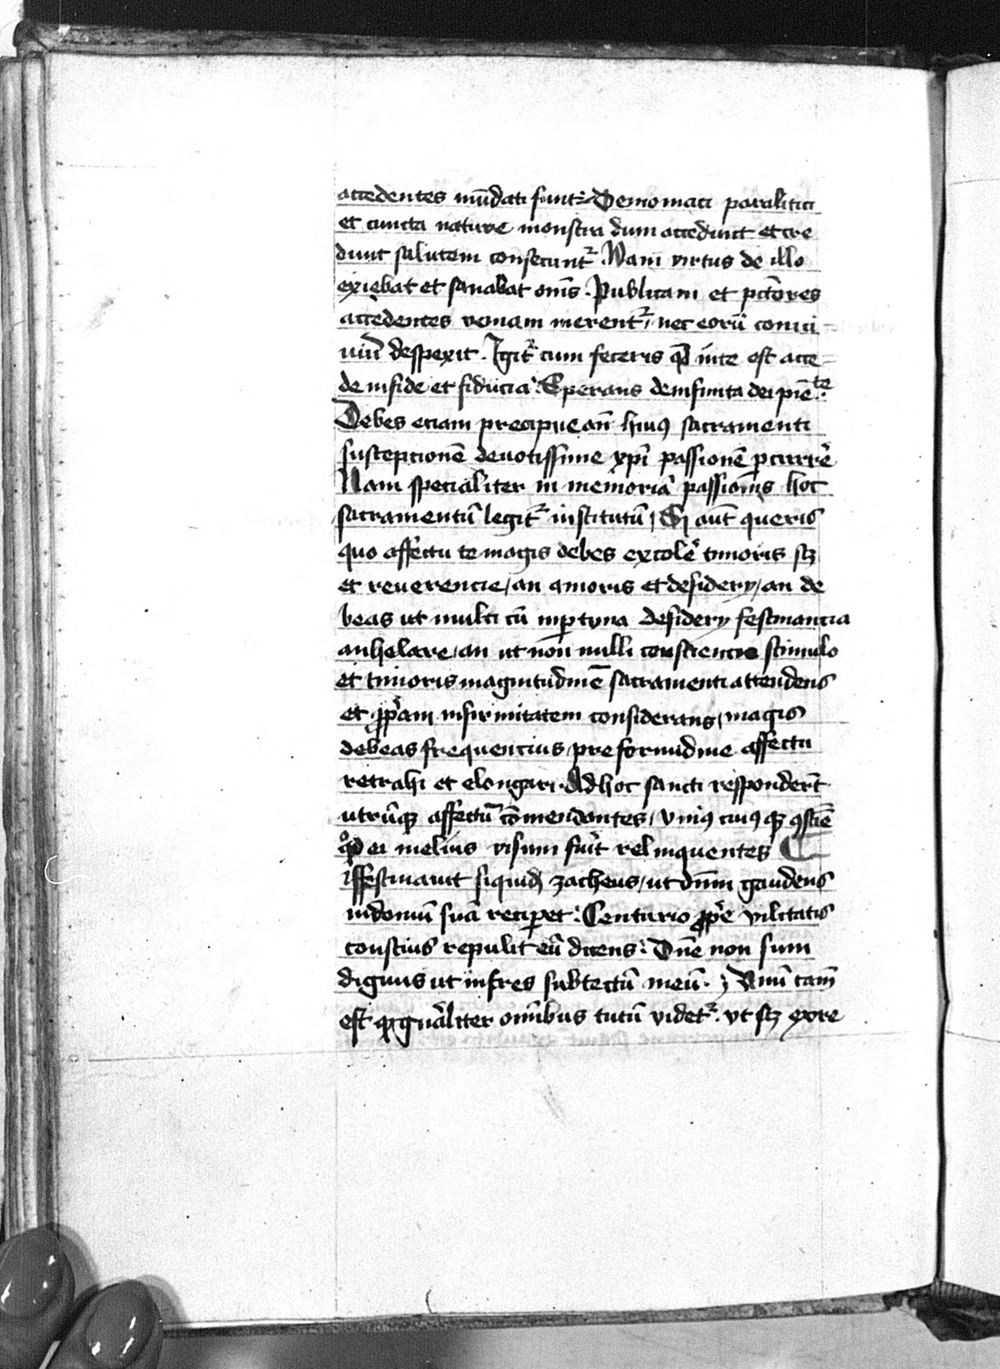 accedentes mūdati sunt: Demoniaci paralitici
et cuncta nature monstra dum accedunt et cre
dunt salutem consecuntʳ. Nam virtus de illo
exiebat et sanabat om̄s. Publicani et pctōres
accedentes veniam merentʳ, nec eorū conui
uiū despexit. Igitʳ cum feceris qd̄ in te est acce
de in fide et fiducia. Sperans de infinita dei pieᵗᵉ
Debes eciam precipue an̄ huiꝰ sacramenti
susceptionē deuotissime xp̄i passionē pcurrē
Nam specialiter in memoriā passionis hoc
sacramentū legitʳ institutū, Si aūt queris
quo affectu te magis debes excolē timoris scꝫ
et reuerencie, an amoris et desiderij, an de
beas ut multi cū inptuna desiderij festinancia
anhelare, an ut non nulli consciencie stimulo
et timoris magnitudinē sacramenti attendens
et pp̄am infirmitatem considerans, magis
debeas frequencius pre formidine affectu
retrahi et elongari. Ad hoc sancti responder̄t
utrūqꝫ affectū cōmendantes, vniꝰ cuiꝰqꝫ ꝯsciē
qd̄ ei melius visum fūit relinquentes
festinauit siquidē zacheus, ut dn̄m gaudens
in domū suā recipet: Centurio pp̄e vilitatis
conscius repulit eū dicens: Dn̄e non sum
dignus ut intres sub tectū meū. Vnū tam̄
est qd gn̄aliter omībus tutū videtʳ. vt scꝫ ex ore